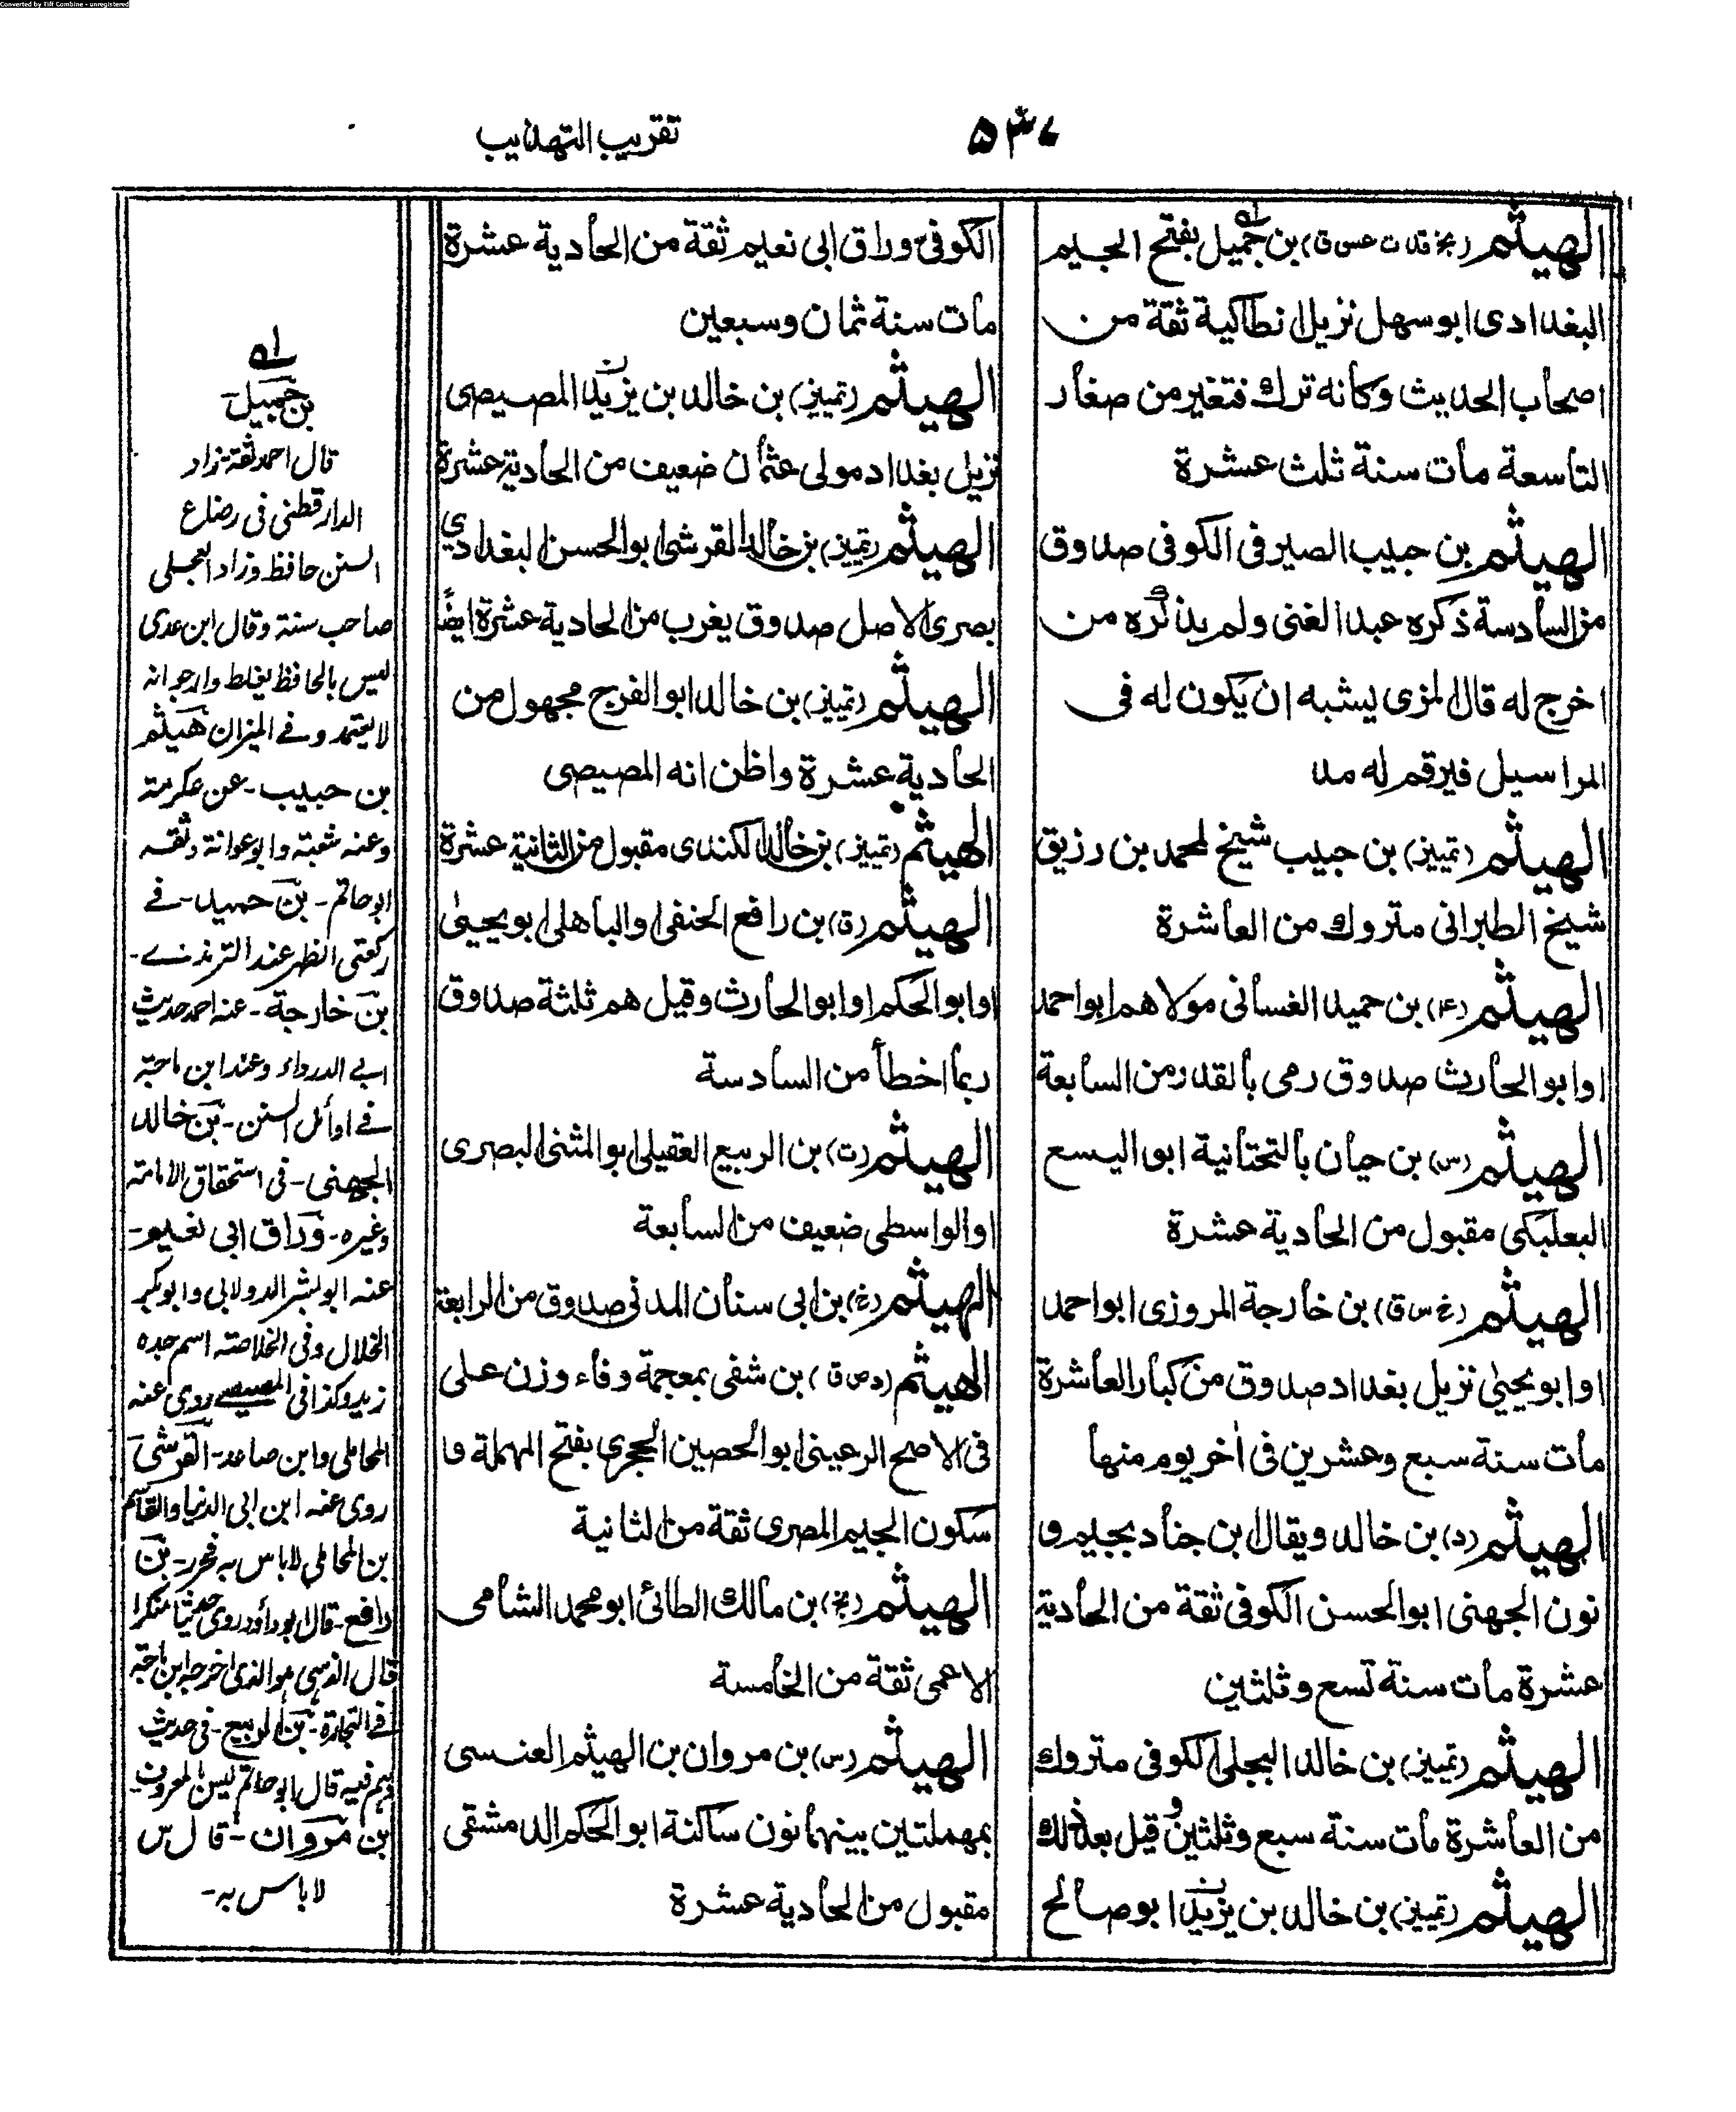 Converted by Tiff Combine - unregistered
۵۳۷
تقريب التهذيب
الهيثم (بخ قد ت عس ق) بن جميل بفتح الجيم
البغدادى ابو سهل نزيل انطاكية ثقة من
اصحاب الحديث وكانه ترك فتغير من صغار
التاسعة مات سنة ثلث عشرة
الهيثم بن حبيب الصيرفى الكوفى صدوق
من السادسة ذكره عبد الغنى ولم يذكره من
اخرج له قال المزى يشبه ان يكون له فى
المراسيل فيرقم له مد
الهيثم (تمييز) بن حبيب شيخ لمحمد بن رزيق
شيخ الطبرانى متروك من العاشرة
الهيثم (ع۴) بن حميد الغسانى مولاهم ابو احمد
او ابو الحارث صدوق رمى بالقدر من السابعة
الهيثم (س) بن حيان بالتحتانية ابو اليسع
البعلبكى مقبول من الحادية عشرة
الهيثم (خ س ق) بن خارجة المروزى ابو احمد
او ابو يحيىٰ نزيل بغداد صدوق من كبار العاشرة
مات سنة سبع وعشرين فى اٰخر يوم منها
الهيثم (د) بن خالد ويقال ابن جناد بجيم و
نون الجهنى ابو الحسن الكوفى ثقة من الحادية
عشرة مات سنة تسع وثلثين
الهيثم (تمييز) بن خالد البجلى الكوفى متروك
من العاشرة مات سنة سبع وثلثين وقيل بعد ذلك
الهيثم (تمييز) بن خالد بن يزيد ابو صالح
الكوفى وراق ابى نعيم ثقة من الحادية عشرة
مات سنة ثمان وسبعين
الهيثم (تمييز) بن خالد بن يزيد المصيصى
نزيل بغداد مولى عثمان ضعيف من الحادية عشرة
الهيثم (تمييز) بن خالد القرشى ابو الحسن البغدادى
بصرى الاصل صدوق يغرب من الحادية عشرة ايضًا
الهيثم (تمييز) بن خالد ابو الفرج مجهول من
الحادية عشرة واظن انه المصيصى
الهيثم (تمييز) بن خالد الكندى مقبول من الثانية عشرة
الهيثم (ق) بن رافع الحنفى او الباهلى ابو يحيىٰ
او ابو الحكم او ابو الحارث وقيل هم ثلثة صدوق
ربما اخطأ من السادسة
الهيثم (ت) بن الربيع العقيلى ابو المثنى البصرى
او الواسطى ضعيف من السابعة
الهيثم (خ) بن ابى سنان المدنى صدوق من الرابعة
الهيثم (د س ق) بن شفى بمعجمة وفاء وزن على
فى الاصح الرعينى ابو الحصين الحجرى بفتح المهملة و
سكون الجيم المصرى ثقة من الثانية
الهيثم (بخ) بن مالك الطائى ابو محمد الشامى
الاعمى ثقة من الخامسة
الهيثم (س) بن مروان بن الهيثم العنسى
بمهملتين بينهما نون ساكنة ابو الحكم الدمشقى
مقبول من الحادية عشرة
له
بن جميل
قال احمد ثقة زاد
الدارقطنى فى رضاع
السنن حافظ وزاد العجلى
صاحب سنة وقال ابن عدى
ليس بالحافظ يغلط وارجو انه
لا يتعمد وفى الميزان هيثم
بن حبيب - عن عكرمة
وعنه شعبة وابو عوانة وثقه
ابو حاتم - بن حميد - فى
ركعتى الظهر عند الترمذى -
بن خارجة - عنه احمد حديث
ابى الدرداء وعند ابن ماجة
فى اوائل السنن - بن خالد
الجهنى - فى استحقاق الامامة
وغيره - وراق ابى نعيم -
عنه ابو بشر الدولابى وابو بكر
الخلال وفى الخلاصة اسم جده
زيد وكذا فى المصيصى روى عنه
المحاملى وابن صاعد - القرشى
روى عنه ابن ابى الدنيا والقاسم
بن المحاملى لا باس به - بن
رافع - قال ابو داؤد روى حديثا منكرا
قال الذهبى هو الذى اخرجه ابن ماجة
فى التجارة - بن الربيع - فى حديث
وهم فيه قال ابو حاتم ليس بالمعروف
ابن مروان - قال س
لا باس به -